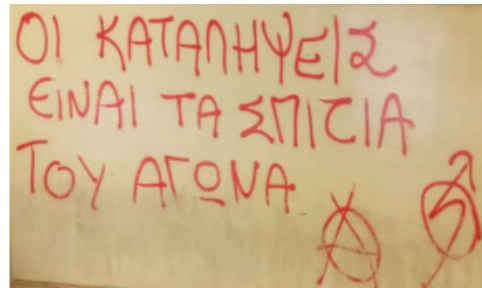 ΟΙ ΚΑΤΑΛΗΨΕΙΣ
ΕΙΝΑΙ ΤΑ ΣΠΙΤΙΑ
ΤΟΥ ΑΓΩΝΑ